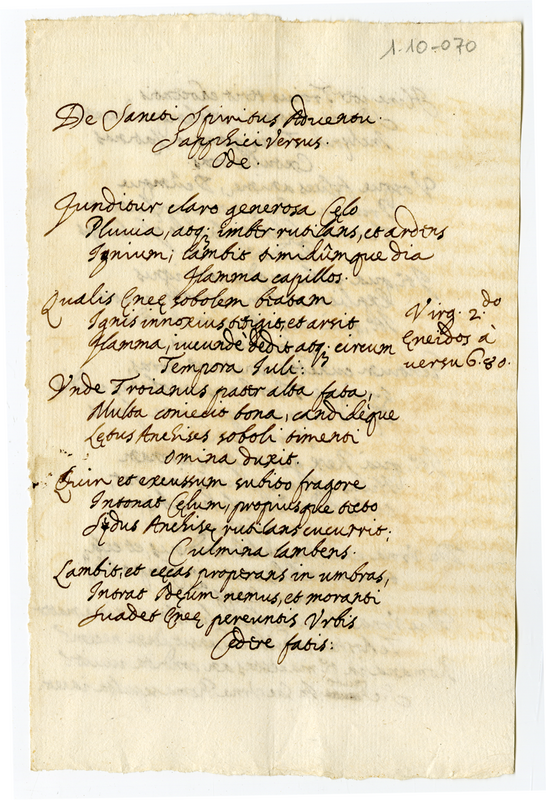 1-10-070
De Sancti Spiritus Adventu
Sapphici versus.
Ode.
Funditur claro generosa Cęlo
Pluvia, atq; imber rutilans, et ardens
Ignium; lambit timidûmque dia
Flamma capillos.
Qualis Ęneę sobolem beatam
Ignis innoxius tetigit, et arsit
Flamma, iucunde dedit atq; circum
Tempora Iuli:
Virg. 2.do
Ęneidos à
versu 680.
Vnde Troianus pater alta fata,
Multa coniecit bona, candidéque
Lętus Anchises soboli timenti
Omina duxit.
Quin et excussum subito fragore
Intonat Cęlum, propiusque tecto
Sydus Anchisę rutilans cucurrit,
Culmina lambens.
Lambit, et cęcas properans in umbras,
Intrat Idęum nemus, et moranti
Suadet Ęneę pereuntis Vrbis
Cedere fatis: